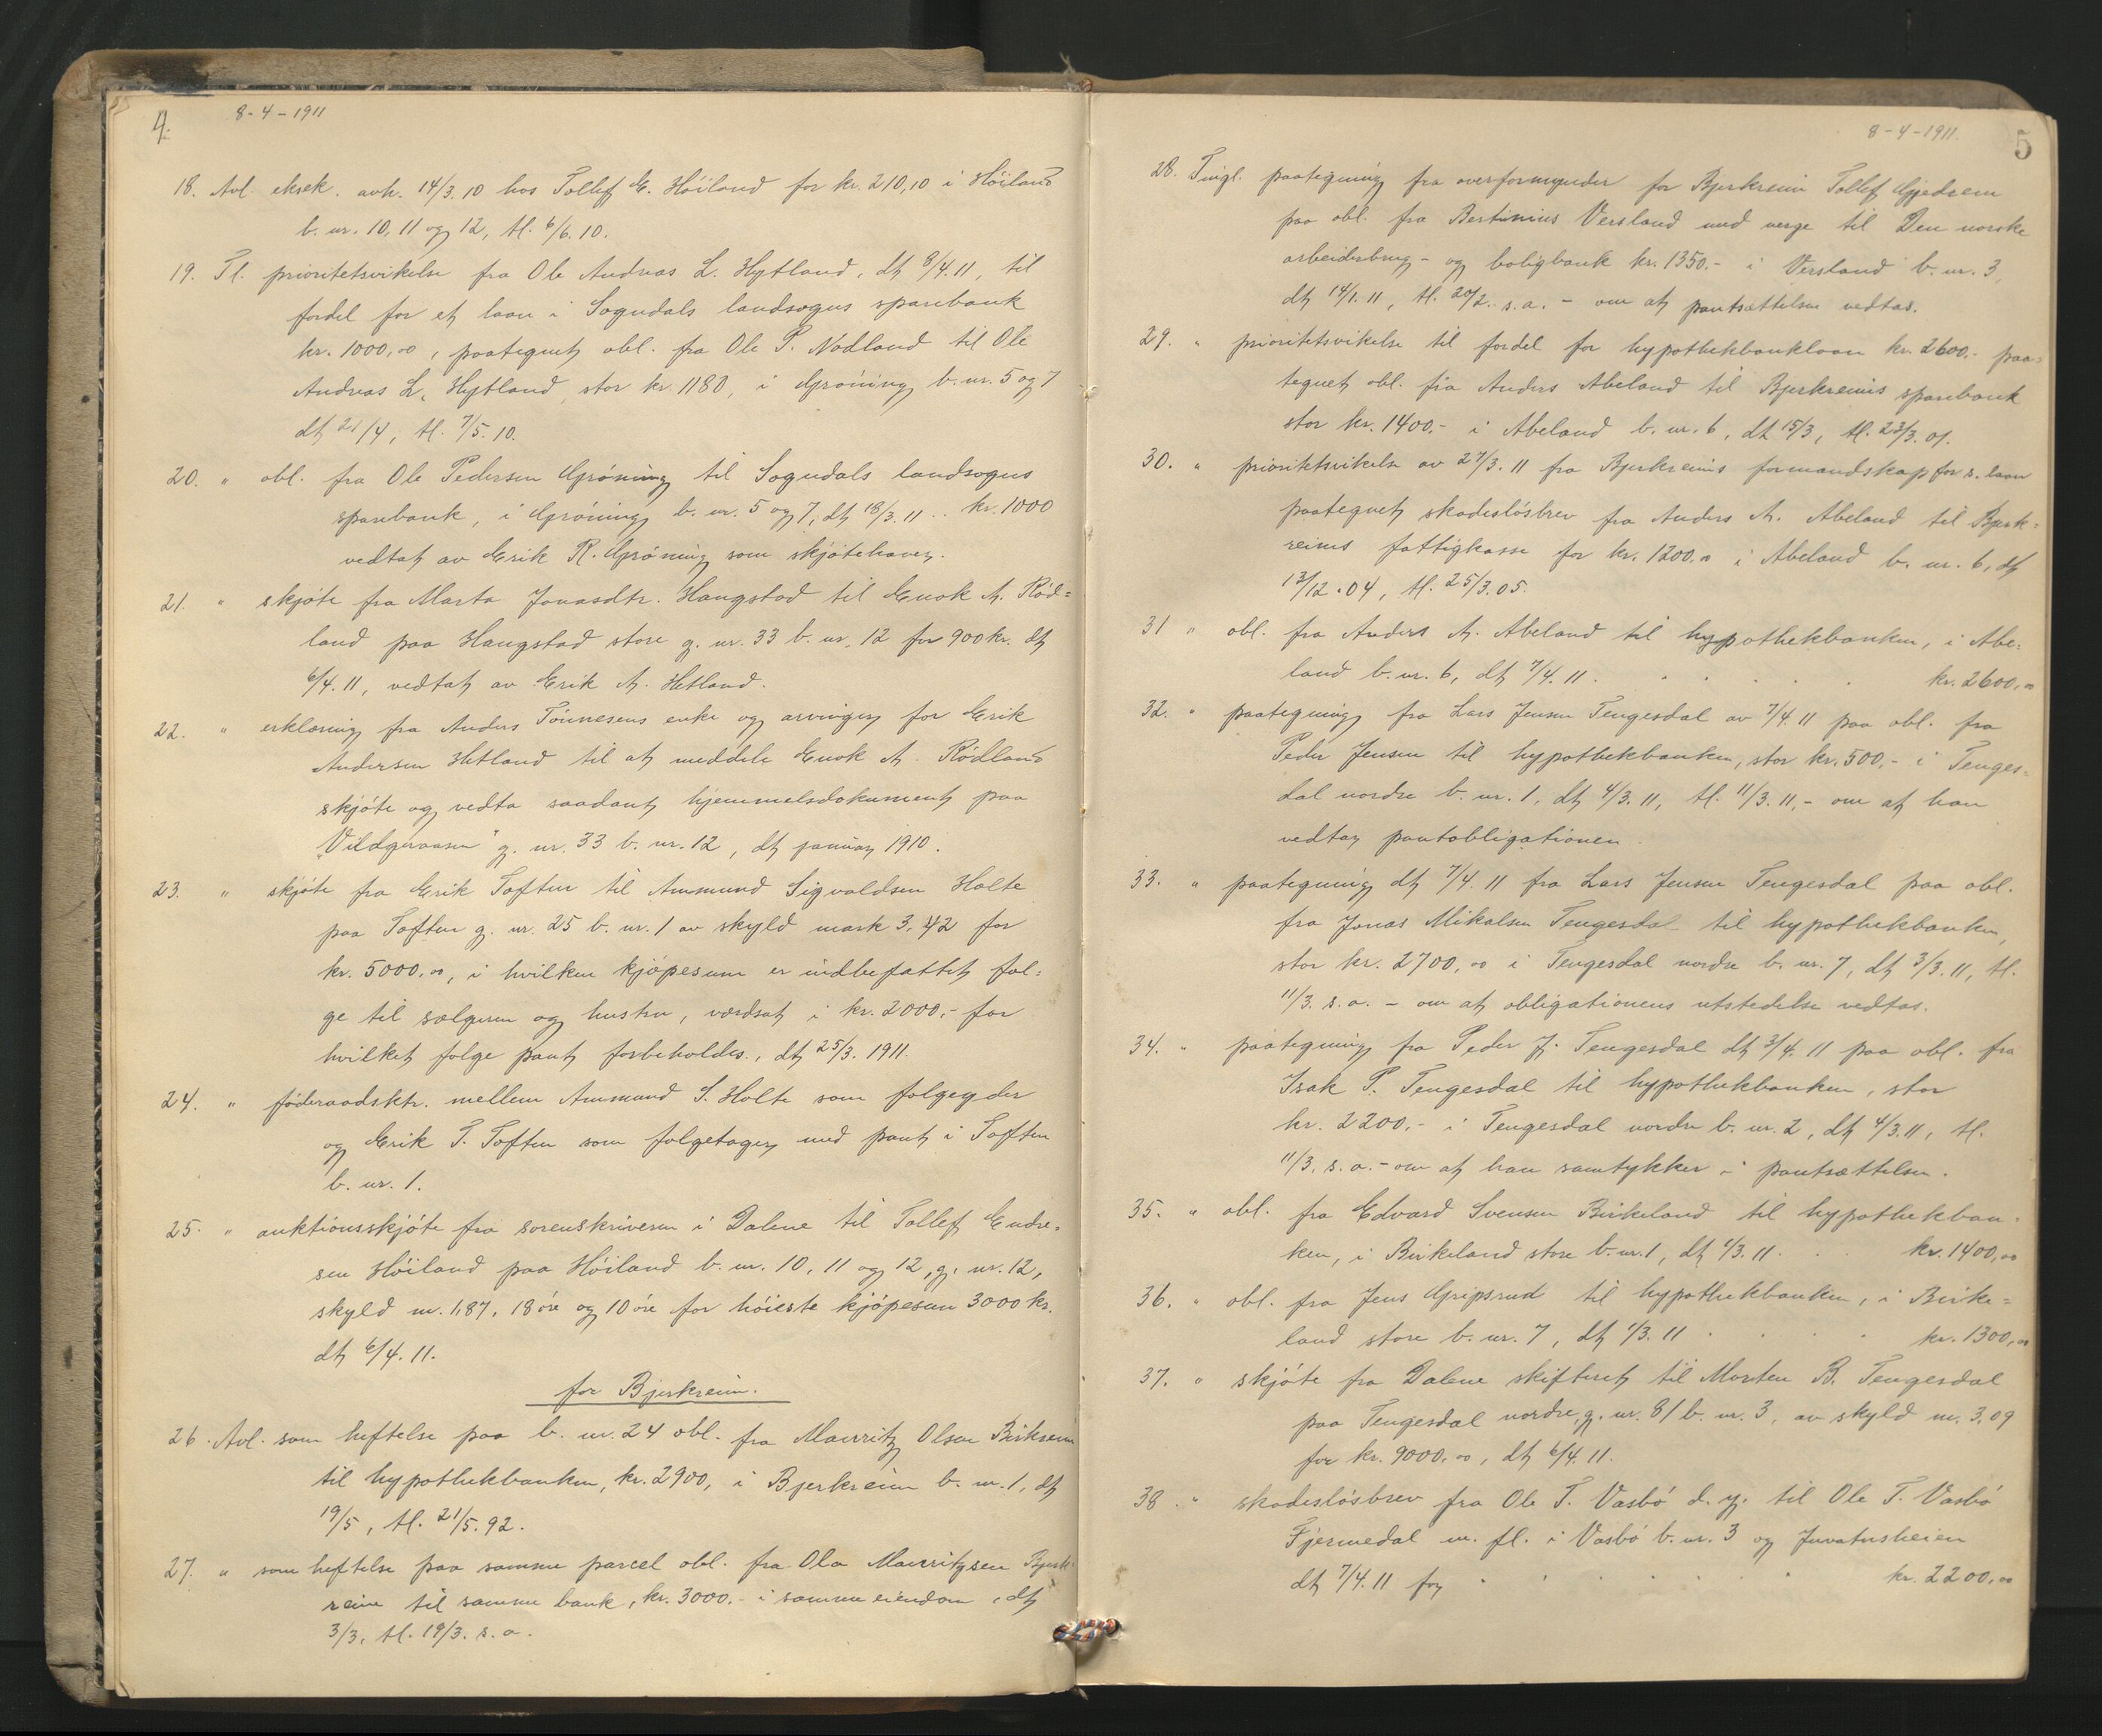 4.
8-4-1911
18. Avl. eksek. avh. 14/3.10 hos Tollef E. Höiland for kr. 210,10 i Höiland
b. nr. 10, 11 og 12, tl. 6/6.10.
19. Tl. prioritetsvikelse fra Ole Andreas L. Hytland, dt 8/4.11, til
fordel for et laan i Sogndals landsogns sparebank
kr. 1000,00, paategnet obl. fra Ole P. Nodland til Ole
Andreas L. Hytland, stor kr. 1180, i Gröning b. nr. 5 og 7
dt 21/4, tl. 7/5.10.
20. " obl. fra Ole Pedersen Gröning til Sogndals landsogns
sparebank, i Gröning b. nr. 5 og 7, dt 18/3.11 .. kr. 1000
vedtat av Erik R. Gröning som skjötehaver.
21. " skjöte fra Marta Jonasdtr. Haugstad til Enok A. Röd=
land paa Haugstad store g. nr. 33 b. nr. 12 for 900 kr. dt
6/4.11, vedtat av Erik A. Hetland.
22. " erklæring fra Anders Tönnesens enke og arvinger for Erik
Andersen Hetland til at meddele Enok A. Rödland
skjöte og vedta saadant hjemmelsdokument paa
"Vildgaasen" g. nr. 33 b. nr. 12, dt januar 1910.
23. " skjöte fra Erik Toften til Ammund Sigvaldsen Holte
paa Toften g. nr. 25 b. nr. 1 av skyld mark 3,42 for
kr. 5000,00, i hvilken kjöpesum er indbefattet fol=
ge til sælgeren og hustru, værdsat i kr. 2000,- for
hvilket folge pant forbeholdes, dt 25/3. 1911.
24. " föderaadsktr. mellem Ammund S. Holte som folgeyder
og Erik T. Toften som folgetager med pant i Toften
b. nr. 1.
25. " auktionsskjöte fra sorenskriveren i Dalene til Tollef Endre=
sen Höiland paa Höiland b. nr. 10, 11 og 12, g. nr. 12,
skyld m. 1,87, 18 öre og 10 öre for höieste kjöpesum 3000 kr.
dt 6/4.11.
for Bjerkreim.
26. Avl. som heftelse paa b. nr. 24 obl. fra Mauritz Olsen Birkreim
til hypothekbanken, kr. 2900, i Bjerkreim b. nr. 1, dt
19/5, tl. 21/5.92.
27. " som heftelse paa samme parcel obl. fra Ola Mauritzsen Bjerk=
reim til samme bank, kr. 3000,- i samme eiendom, dt
3/3, tl. 19/3. s.a.
8-4-1911.
5
28. Tingl. paategning fra overformynder for Bjerkreim Tollef Gjedrem
paa obl. fra Bertinius Versland med verge til Den norske
arbeiderbrug- og boligbank kr. 1350.- i Versland b. nr. 3,
dt 14/1.11, tl. 20/2. s.a. - om at pantsættelsen vedtas.
29. " prioritetsvikelse til fordel for hypothekbanklaan kr. 2600.- paa=
tegnet obl. fra Anders Abeland til Bjerkreims sparebank
stor kr. 1400.- i Abeland b. nr. 6, dt 15/3, tl. 23/3.01.
30. " prioritetsvikelse av 27/3.11 fra Bjerkreims formandskap for s. laan
paategnet skadeslösbrev fra Anders A. Abeland til Bjerk=
reims fattigkasse for kr. 1200,00 i Abeland b. nr. 6, dt
13/12.04, tl. 25/3.05.
31 " obl. fra Anders A. Abeland til hypothekbanken, i Abe=
land b. nr. 6, dt 7/4.11. . . . . . kr. 2600,00
32. " paategning fra Lars Jensen Tengesdal av 7/4.11 paa obl. fra
Peder Jensen til hypothekbanken, stor kr. 500,- i Tenges=
dal nordre b. nr. 1, dt 4/3.11, tl. 11/3.11,- om at han
vedtar pantobligationen.
33. " paategning dt 7/4.11 fra Lars Jensen Tengesdal paa obl.
fra Jonas Mikalsen Tengesdal til hypothekbanken,
stor kr. 2700,00 i Tengesdal nordre b. nr. 7, dt 3/3.11, tl.
11/3. s.a. - om at obligationens utstedelse vedtas.
34. " paategning fra Peder J. Tengesdal dt 3/4.11 paa obl. fra
Isak P. Tengesdal til hypothekbanken, stor
kr. 2200.- i Tengesdal nordre b. nr. 2, dt 4/3.11, tl.
11/3. s.a. - om at han samtykker i pantsættelsen.
35. " obl. fra Edvard Svensen Birkeland til hypothekban=
ken, i Birkeland store b. nr. 1, dt 1/3.11. . kr. 1400,00
36. " obl. fra Jens Gripsrud til hypothekbanken, i Birke=
land store b. nr. 7, dt 1/3.11 . . . . kr. 1300,00
37. " skjöte fra Dalene skifteret til Morten B. Tengesdal
paa Tengesdal nordre, g. nr. 81 b. nr. 3, av skyld m. 3,09
for kr. 9000,00, dt 6/4.11.
38. " skadeslösbrev fra Ole T. Vasbö d.y. til Ole T. Vasbö
Fjermedal m. fl. i Vasbö b. nr. 3 og
dt 7/4.11 for . . . . . . kr. 2200,00